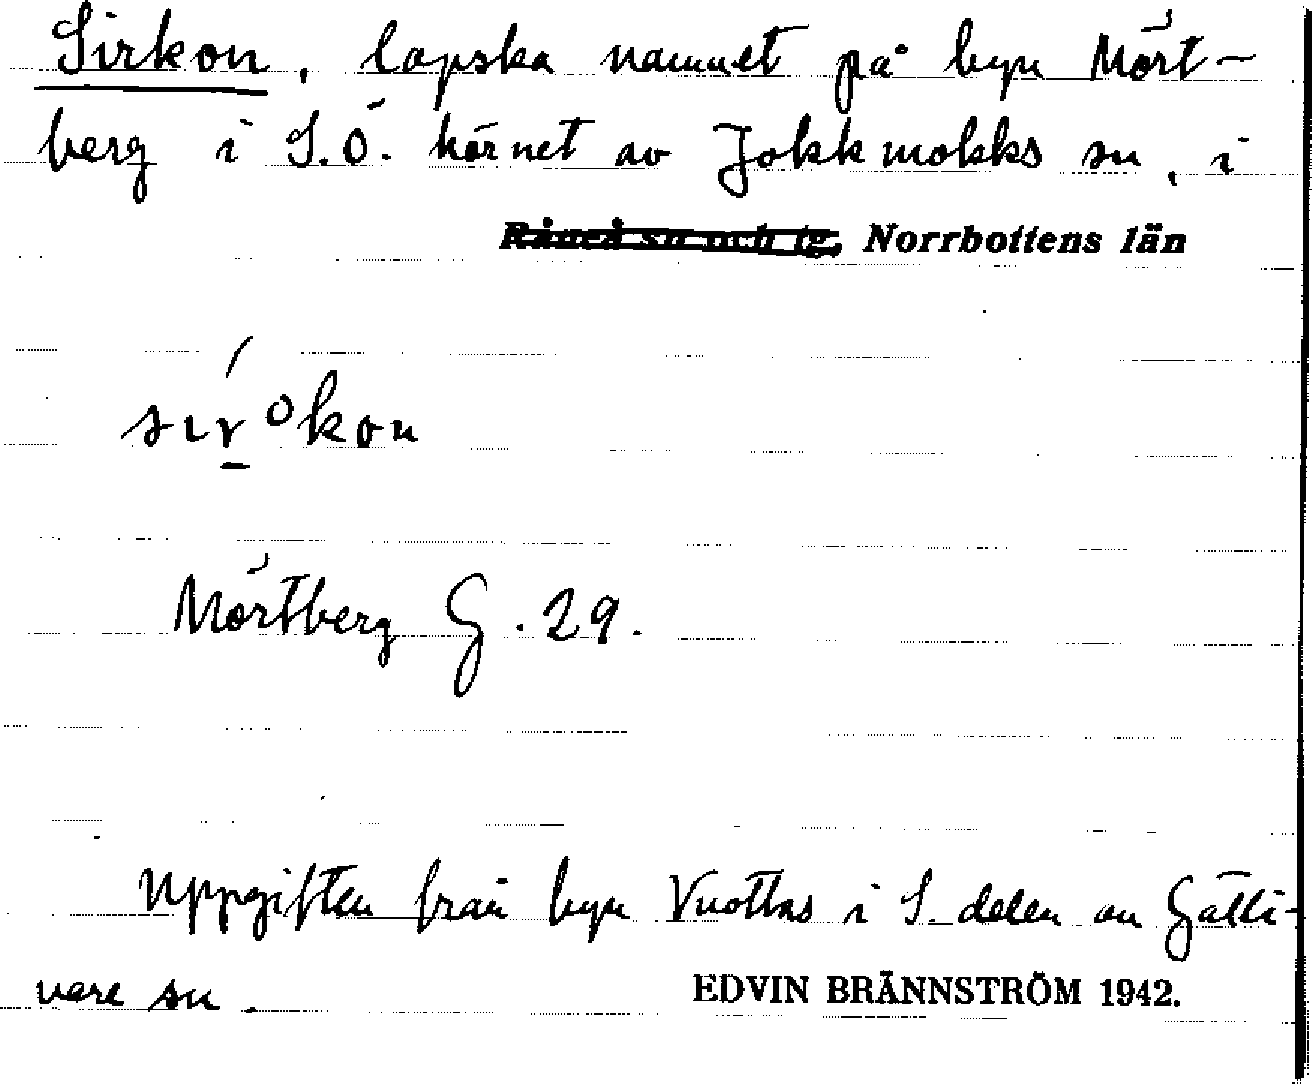 Sirkon, lapska namnet på byn Mört-
berg i S.Ö. hörnet av Jokkmokks sn, i
Råneå sn och tg, Norrbottens län
sır̲°kon
Mörtberg G. 29.
Uppgiften från byn Vuottas i S. delen av Gälli-
vare sn.
EDVIN BRÄNNSTRÖM 1942.